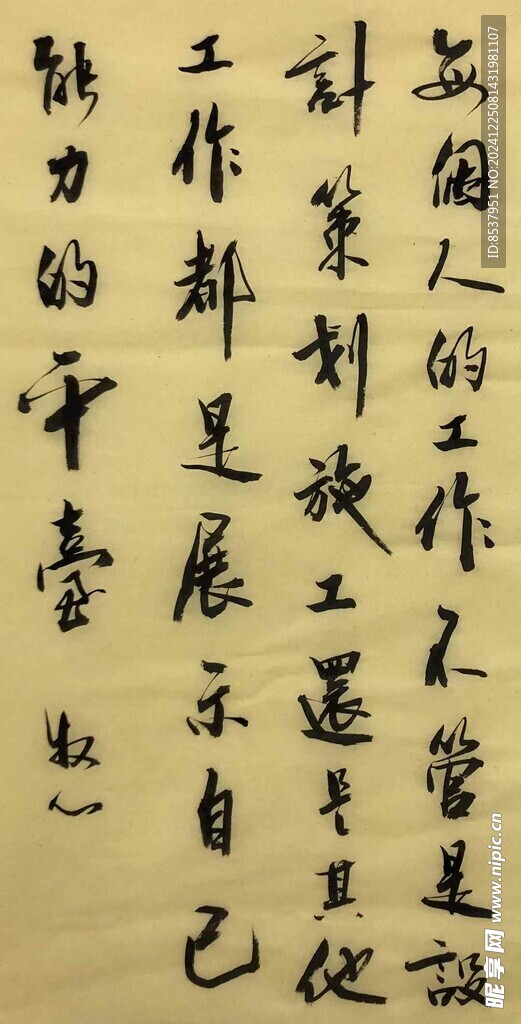 每個人的工作不管是設
計策划施工還是其他
工作都是展示自己
能力的平臺
牧心
ID:8537951 NO:20241225081431981107
昵享网 www.nipic.cn